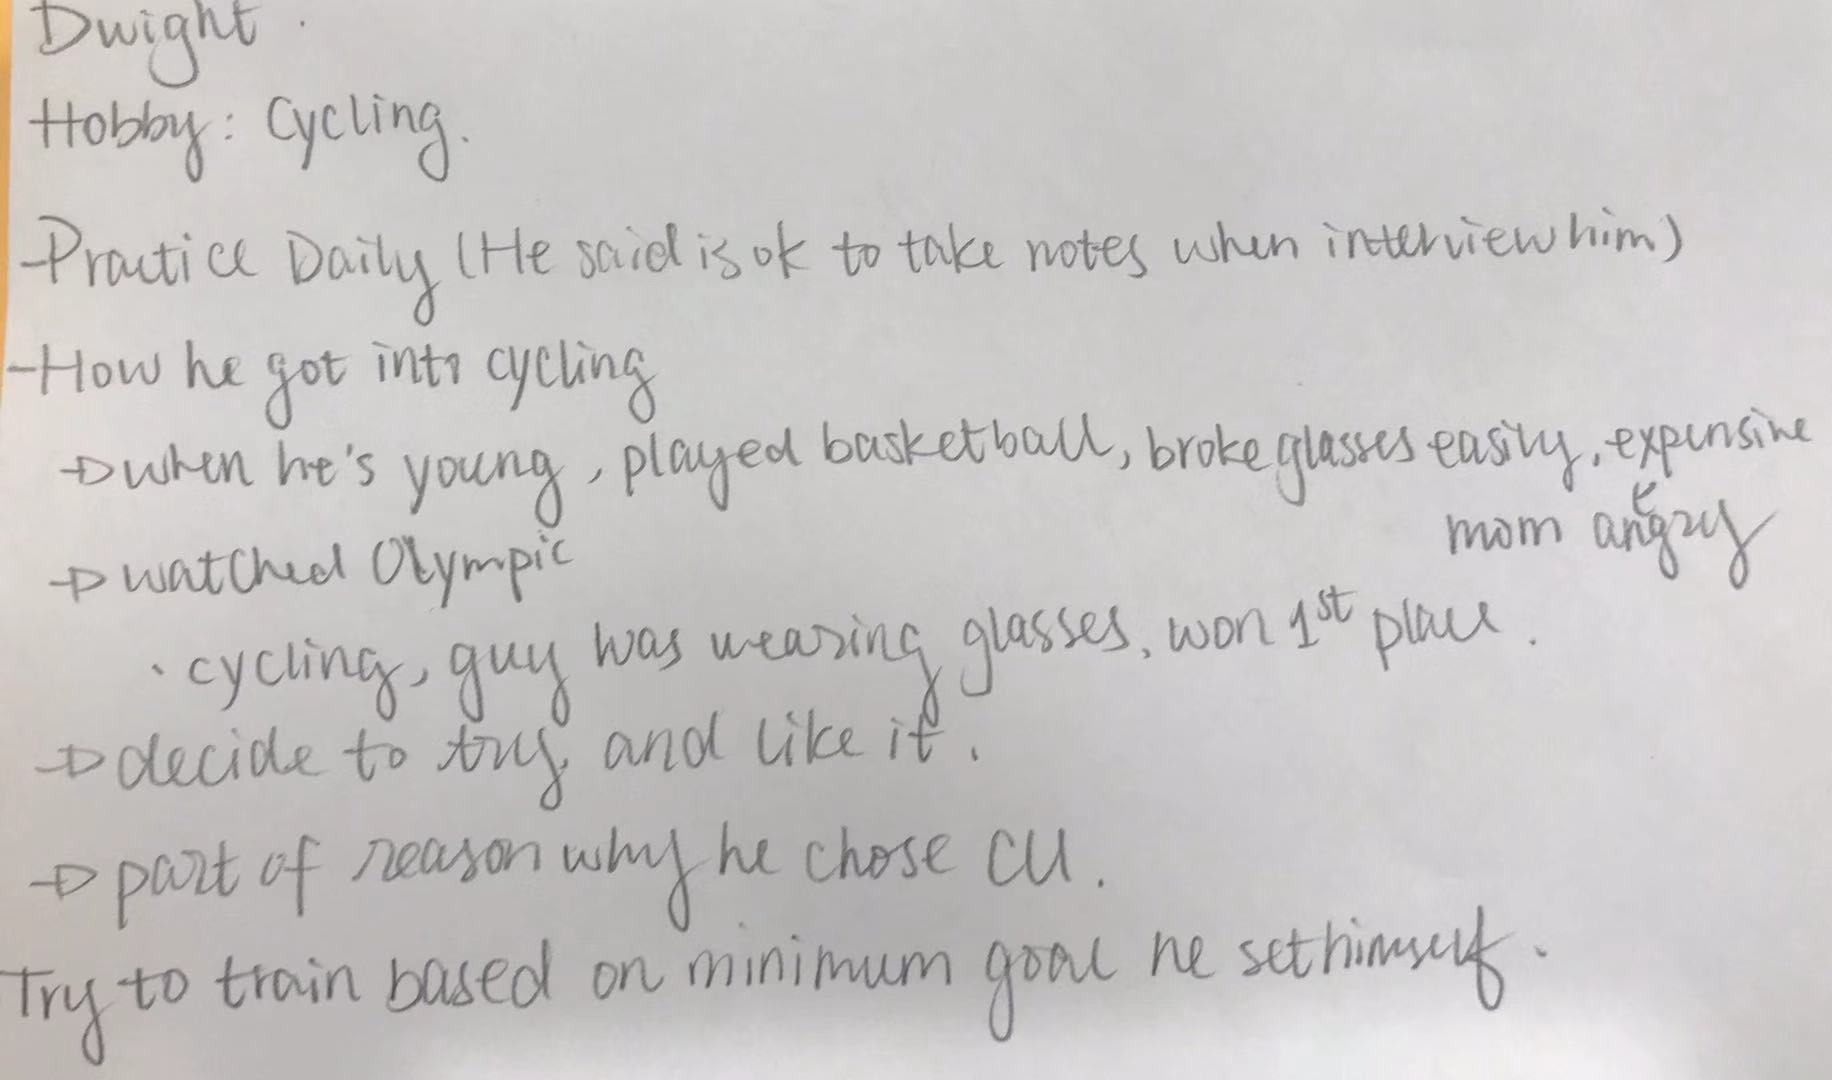 Dwight.
Hobby: Cycling.
-Practice Daily (He said is ok to take notes when interview him)
-How he got into cycling
→ when he's young, played basketball, broke glasses easily, expensive
mom angry
→ watched Olympic
· cycling, guy was wearing glasses, won 1st place.
→ decide to try and like it.
→ part of reason why he chose CU.
Try to train based on minimum goal he set himself.